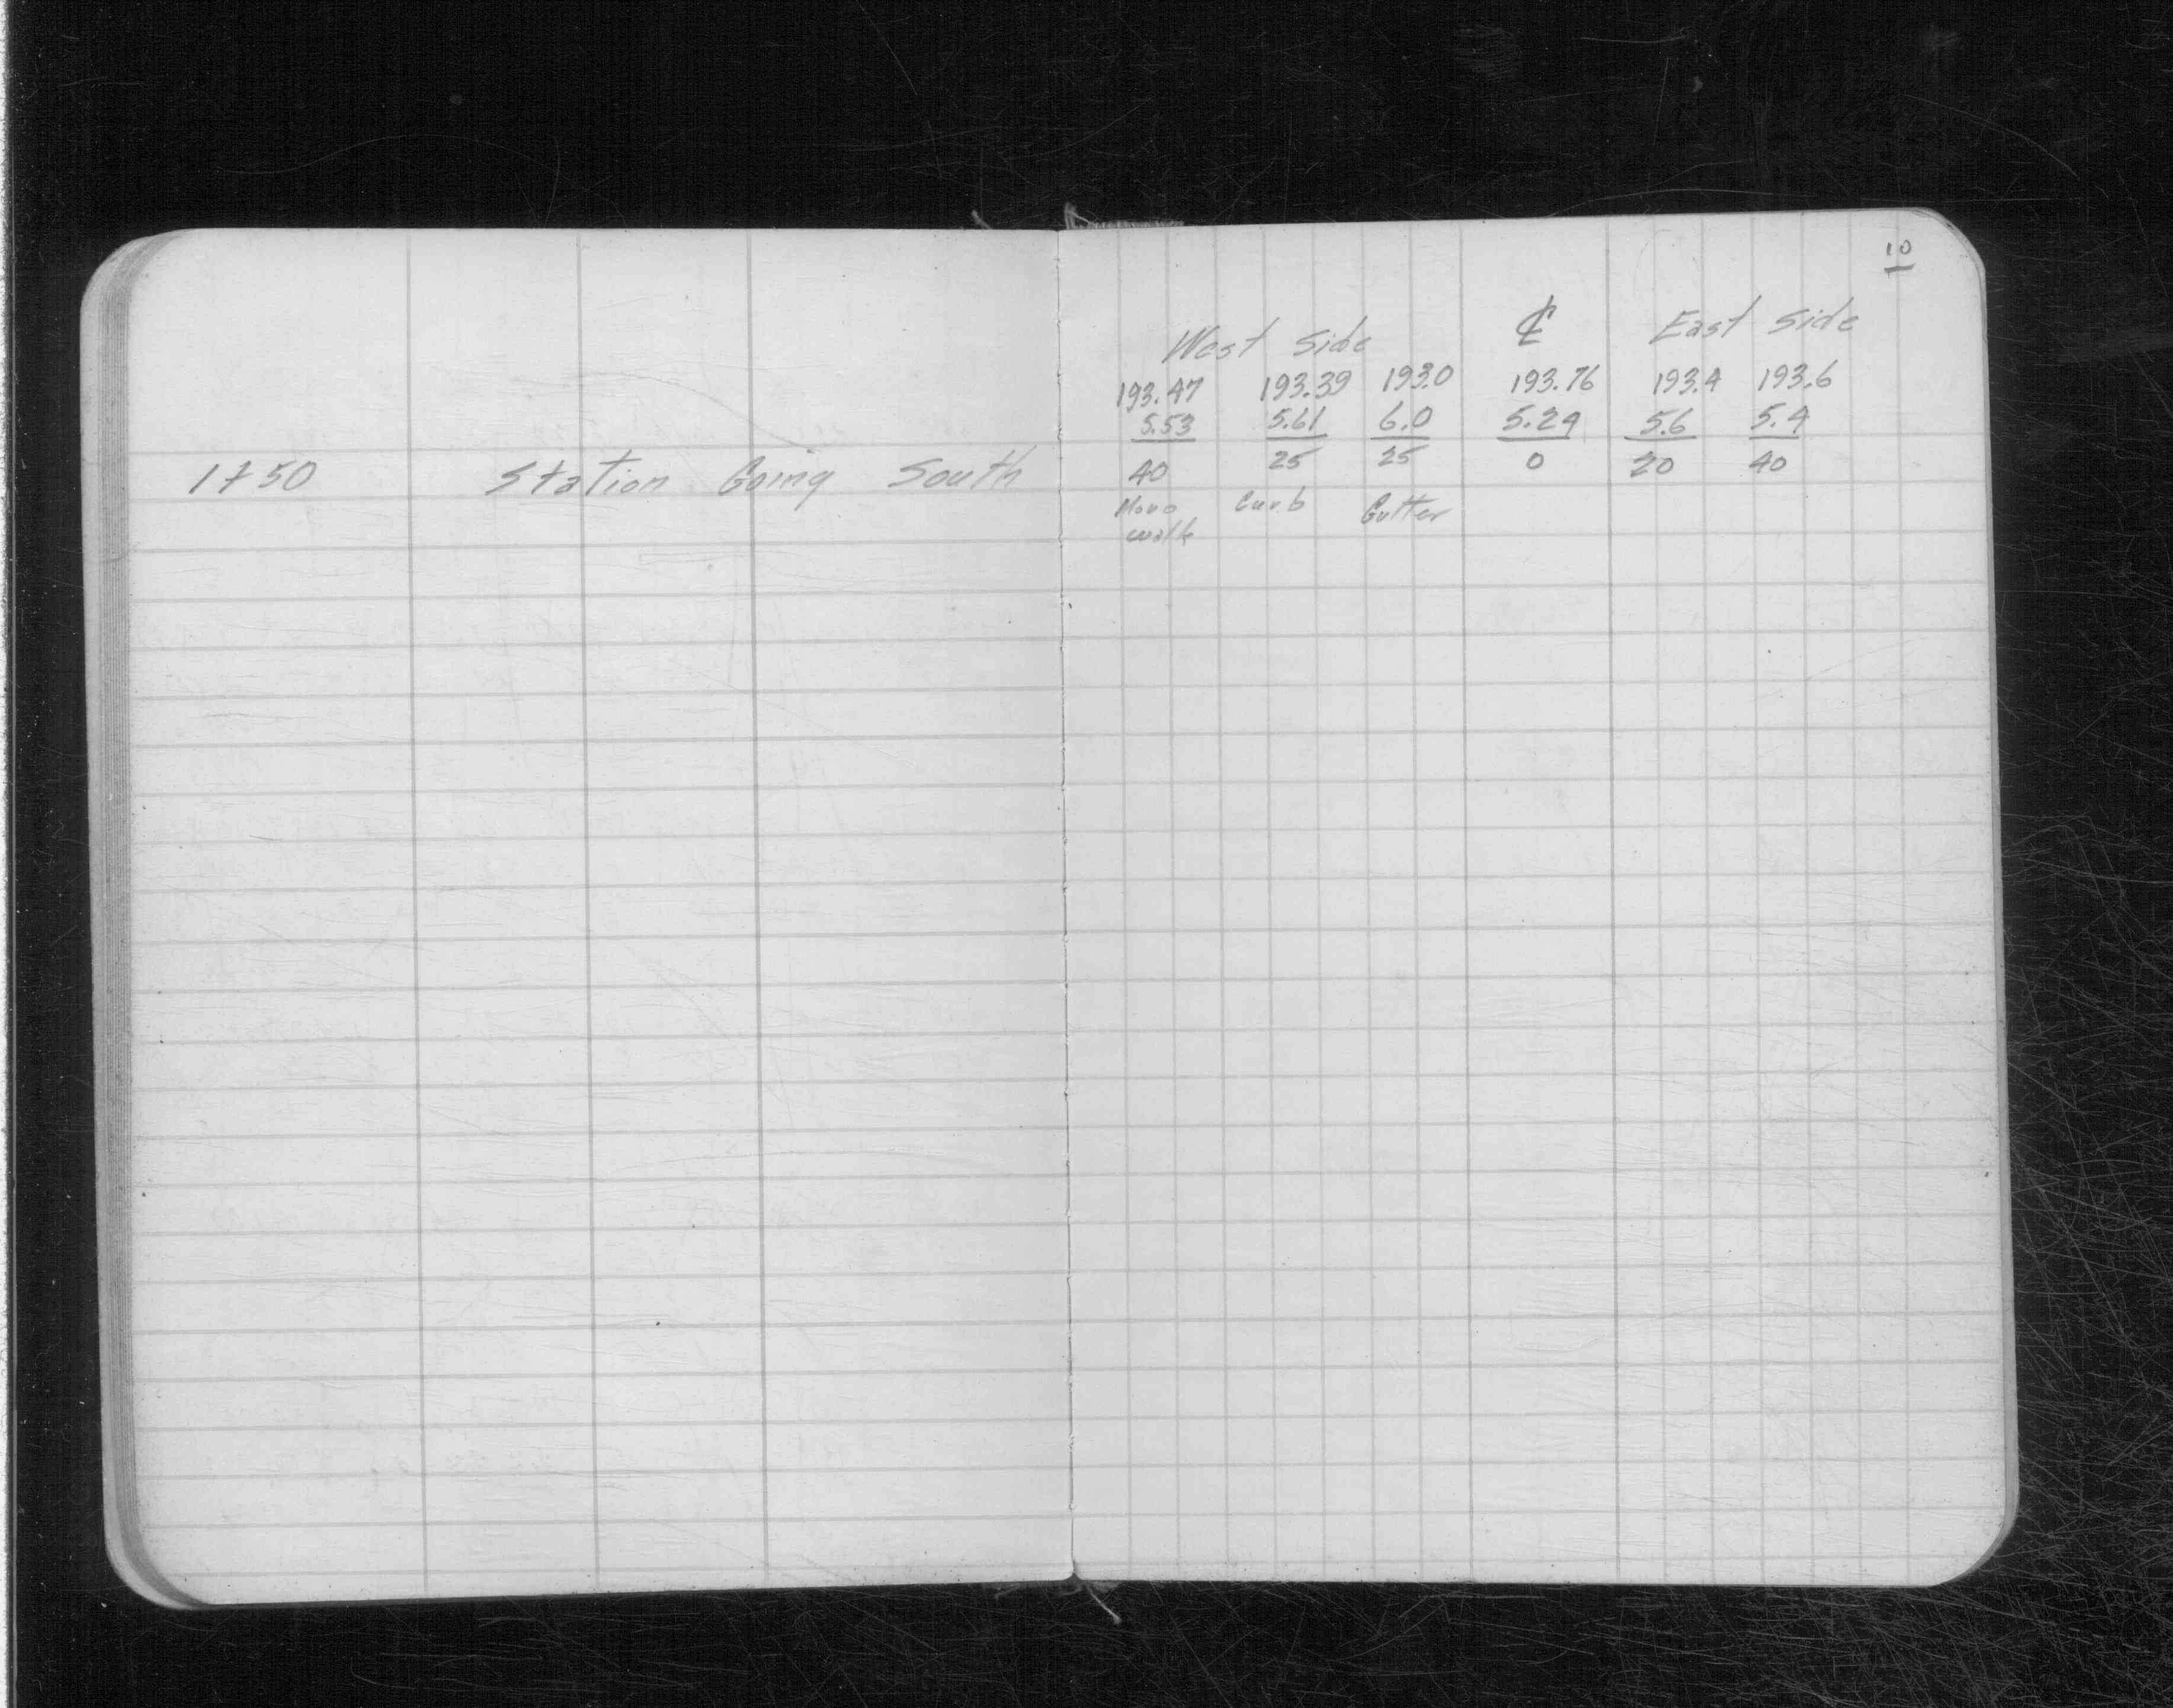 10
West Side ℄ East Side
193.47 193.39 193.0 193.76 193.4 193.6
5.53 5.61 6.0 5.24 5.6 5.4
1+50 Station Going South 40 25 25 0 20 40
Mono Curb Gutter
walk